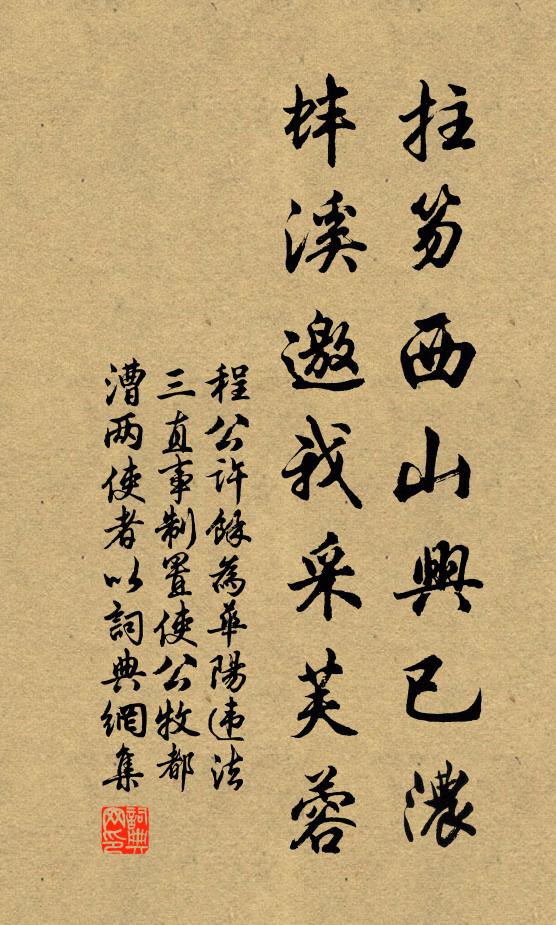 拄笏西山興已濃
蚌溪邀我采芙蓉
程公許餘為華陽违法
三直事制置使公牧都
漕两使者以詞典網集
詞典网印